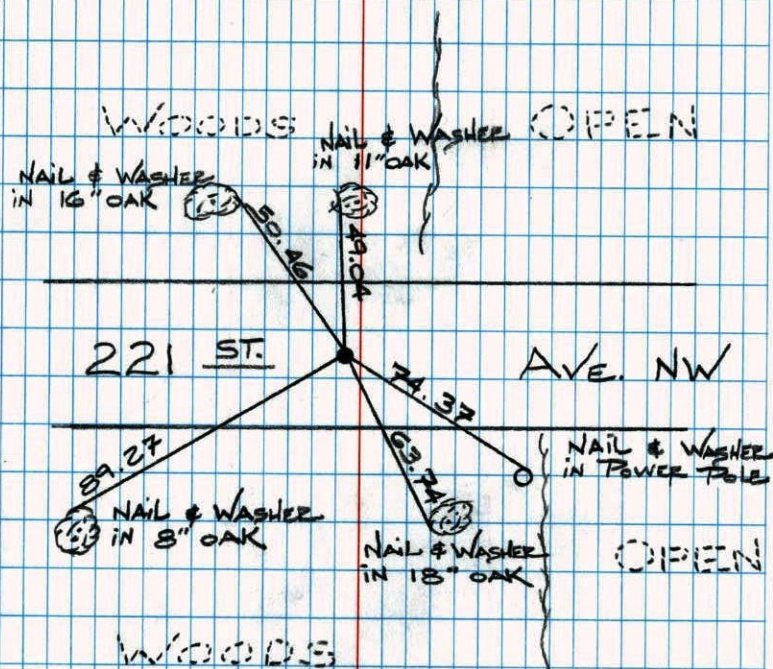 WOODS
OPEN
NAIL & WASHER
IN 11" OAK
NAIL & WASHER
IN 16" OAK
50.46
49.04
221 ST.
AVE. NW
74.37
89.27
63.74
NAIL & WASHER
IN POWER POLE
NAIL & WASHER
IN 8" OAK
NAIL & WASHER
IN 18" OAK
OPEN
WOODS